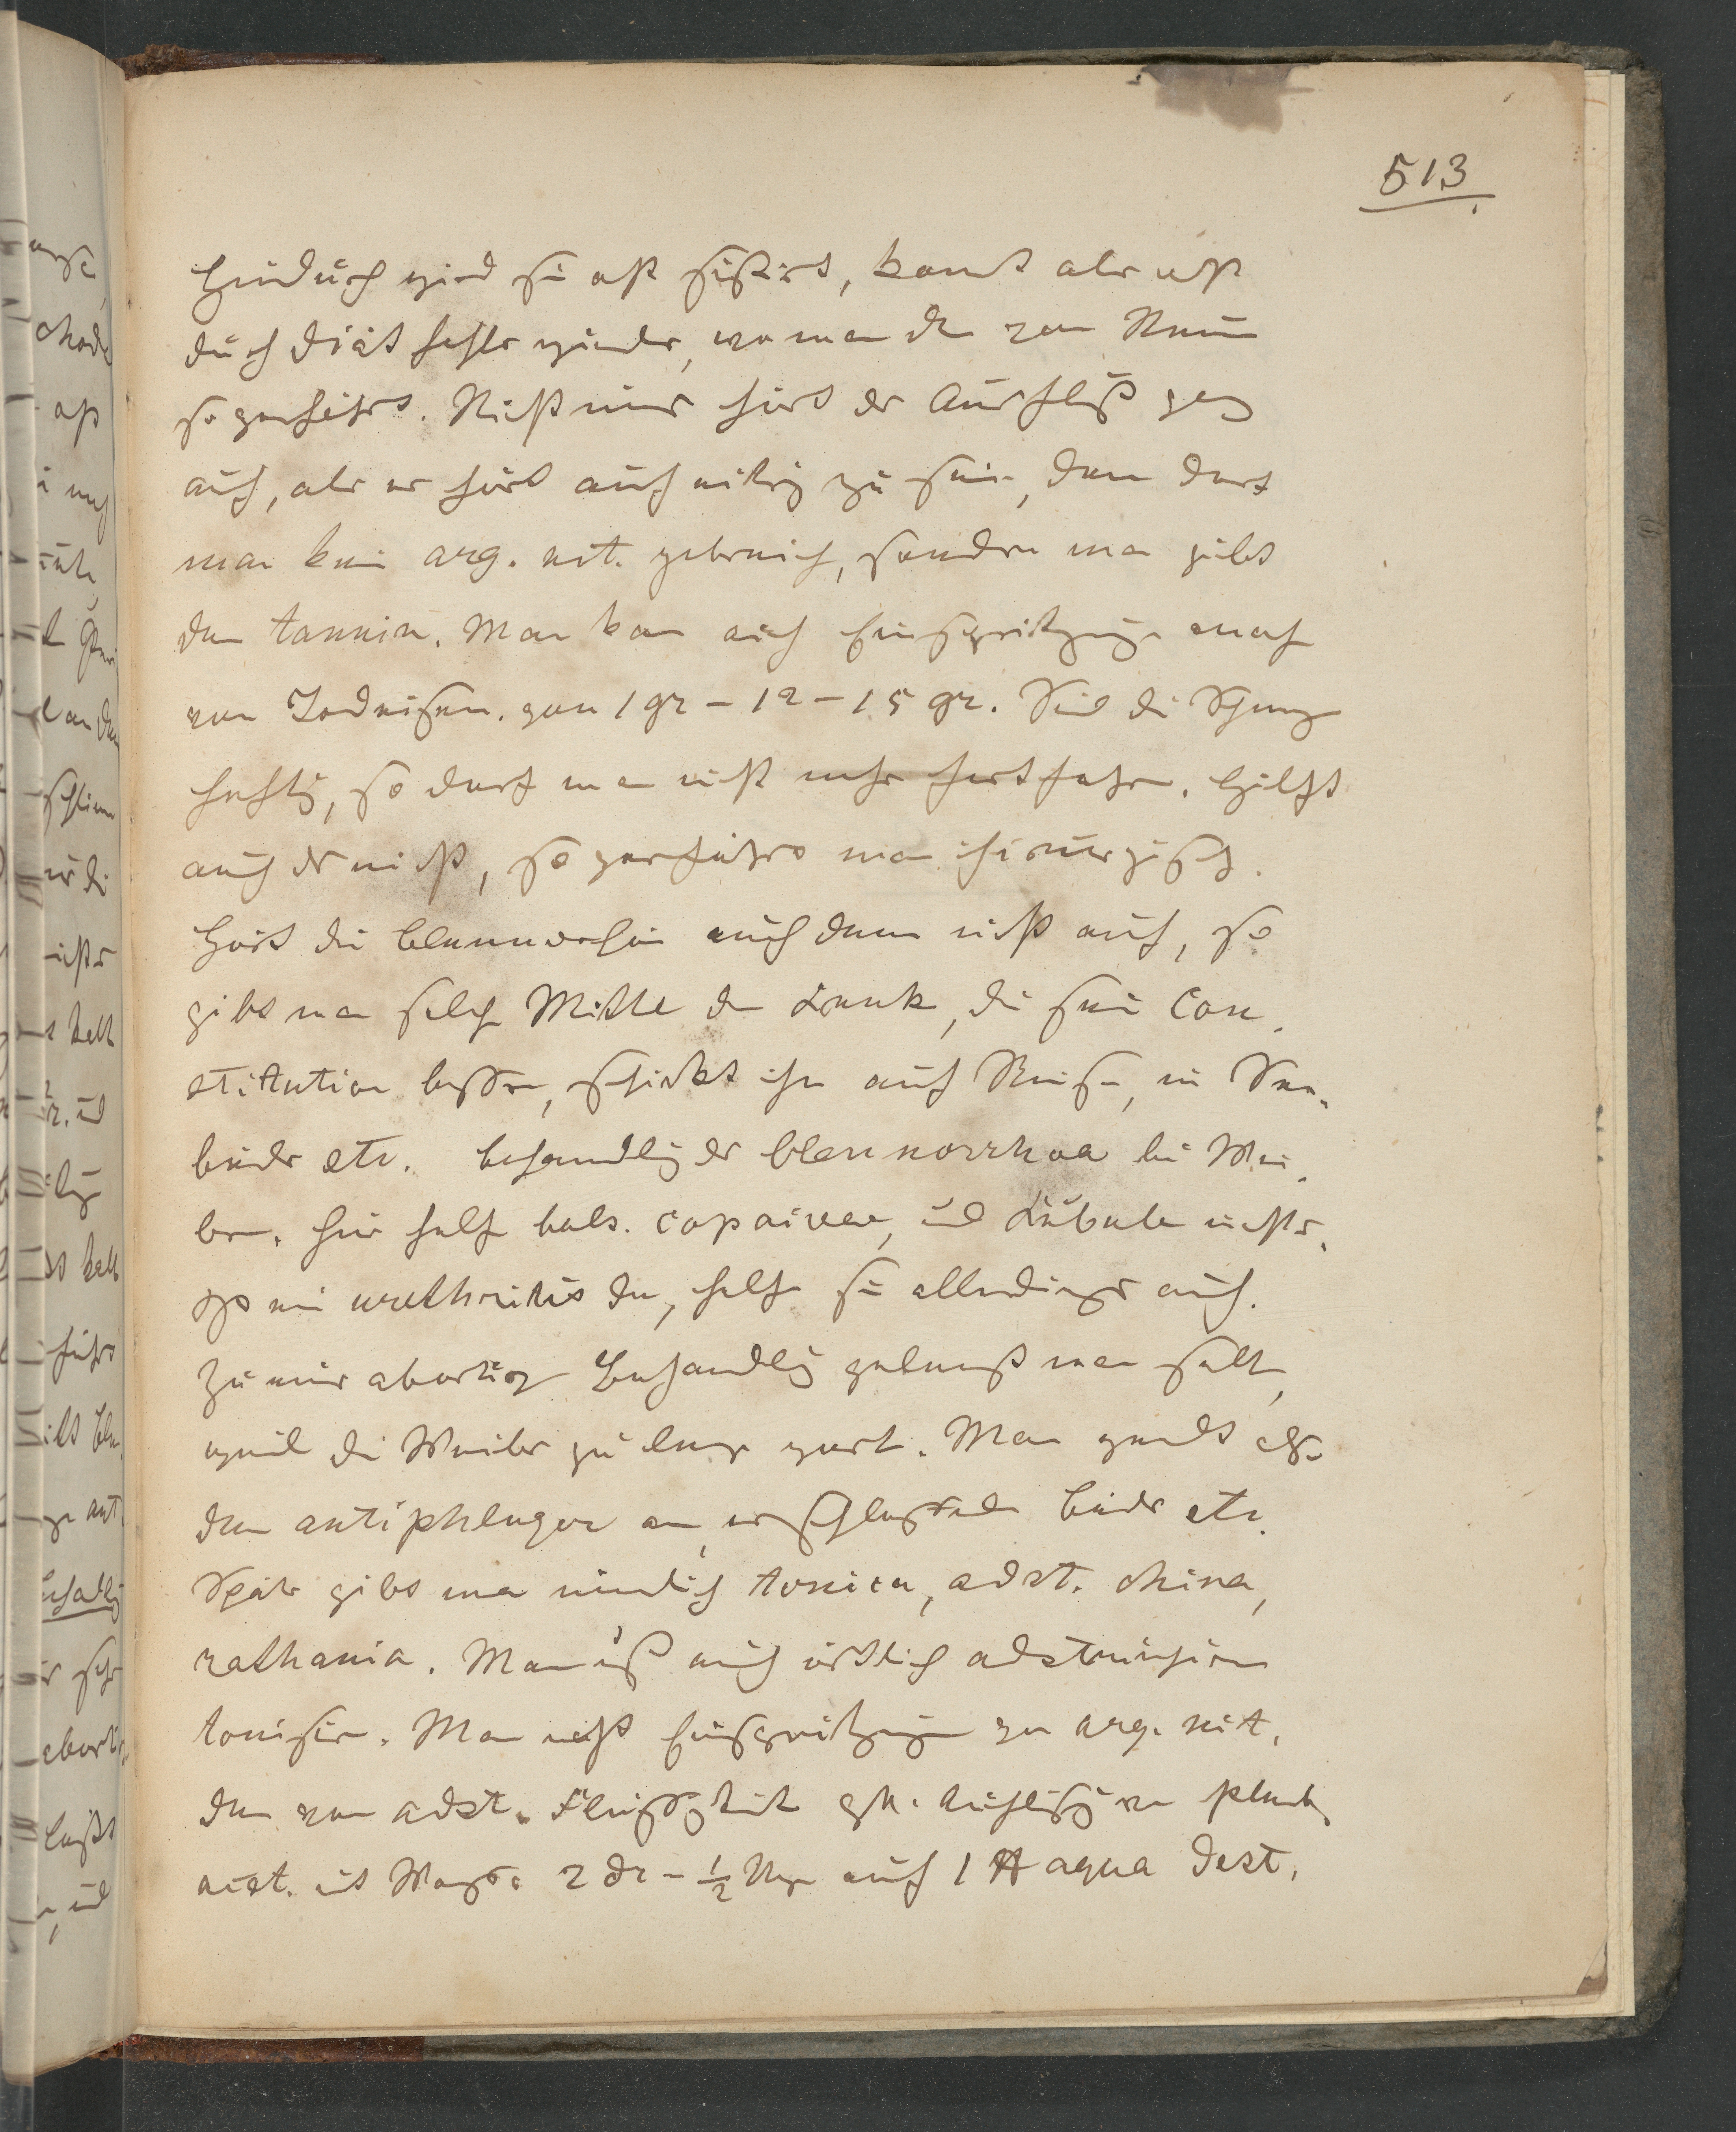 513
Hiedurch wird sie oft sistirt, komt aber oft
durch Diätfehler wieder, wo man den von Neuem
so verfährt. Nicht nur hört der Ausfluß
auf, aber er hört auf eitrig zu sein, dann darf
man kein arg. nit. gebrauch, sondern man gibt
dan tannin. Man kan auch Einspritzunge mach
von Jodeisen. von 1 gr – 12 – 15 gr. Sind die
heftig, so darf man nicht mehr fortfahren. Hilft
auch d nicht, so verfährt man chirurgisch.
Hört die blennorrhöe auch dann nicht auf, so
gibt man solch Mittel dem Krank, die sein Con-
stitution bessern, schickt ihn auf Reisen, in See-
bäder etc. Behandlg der blennorrhoea bei Wei-
bern. Hier helf bals. copaivae, und Kubebe nichts.
Ist ein urethritis da, helfe sie allerdings auch.
Zu einer abortiv Behandlg gelangt man selt,
weil die Weiber zu lange wart. Man wendt als-
dan antiphlogose an, erschlaffende Bäder etc.
Später gibt man innerlich tonica, adst. china,
rathania. Man muß auch örtlich adstringiren
tonisiren. Man macht Einspritzunge von arg. nit.
dan von adst. Flüssigkeit Auflösung von plumb.
acet. in Wasser 2 dr – ½ Unze auf 1 ℔ aqua dest.